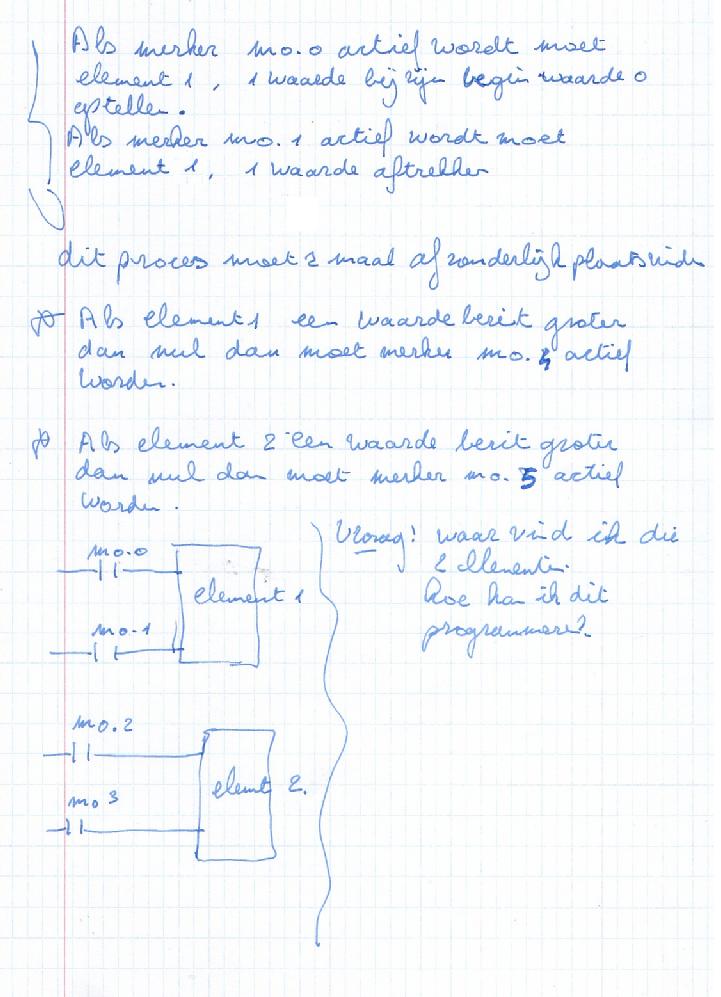 Als merker m0.0 actief wordt moet
element 1, 1 waarde bij zijn begin waarde 0
optellen.
Als merker m0.1 actief wordt moet
element 1, 1 waarde aftrekken
dit proces moet 2 maal afzonderlijk plaatsvinden
Als element 1 een waarde bezit groter
dan nul dan moet merker m0.4 actief
worden.
Als element 2 een waarde bezit groter
dan nul dan moet merker m0.5 actief
worden.
Vraag! waar vind ik die
2 elementen.
hoe kan ik dit
programmeren?
m0.0
element 1
m0.1
m0.2
elemt 2.
m0 3